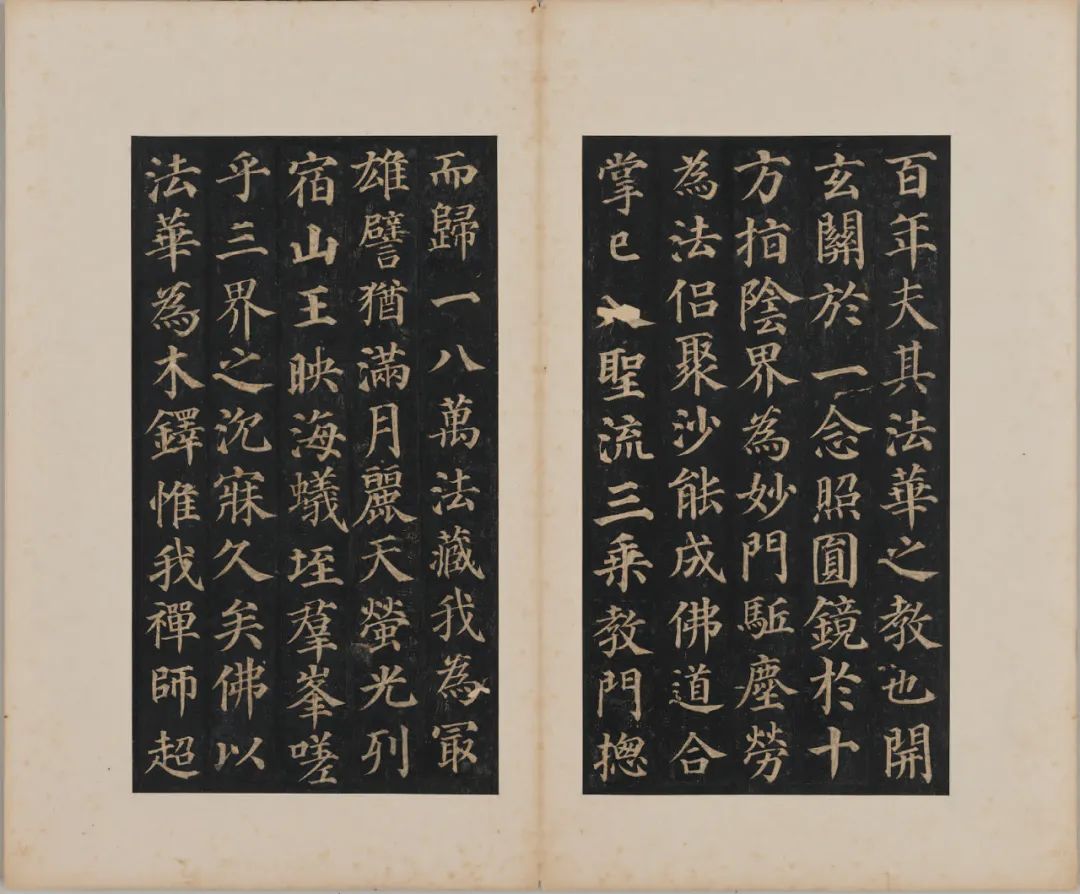 百年夫其法華之教也開
玄關於一念照圓鏡於十
方指陰界為妙門駈塵勞
為法侶聚沙能成佛道合
掌已入聖流三乗教門揔
而歸一八萬法藏我為冣
雄譬猶滿月麗天螢光列
宿山王映海蟻垤羣峯嗟
乎三界之沉寐久矣佛以
法華為木鐸惟我禪師超